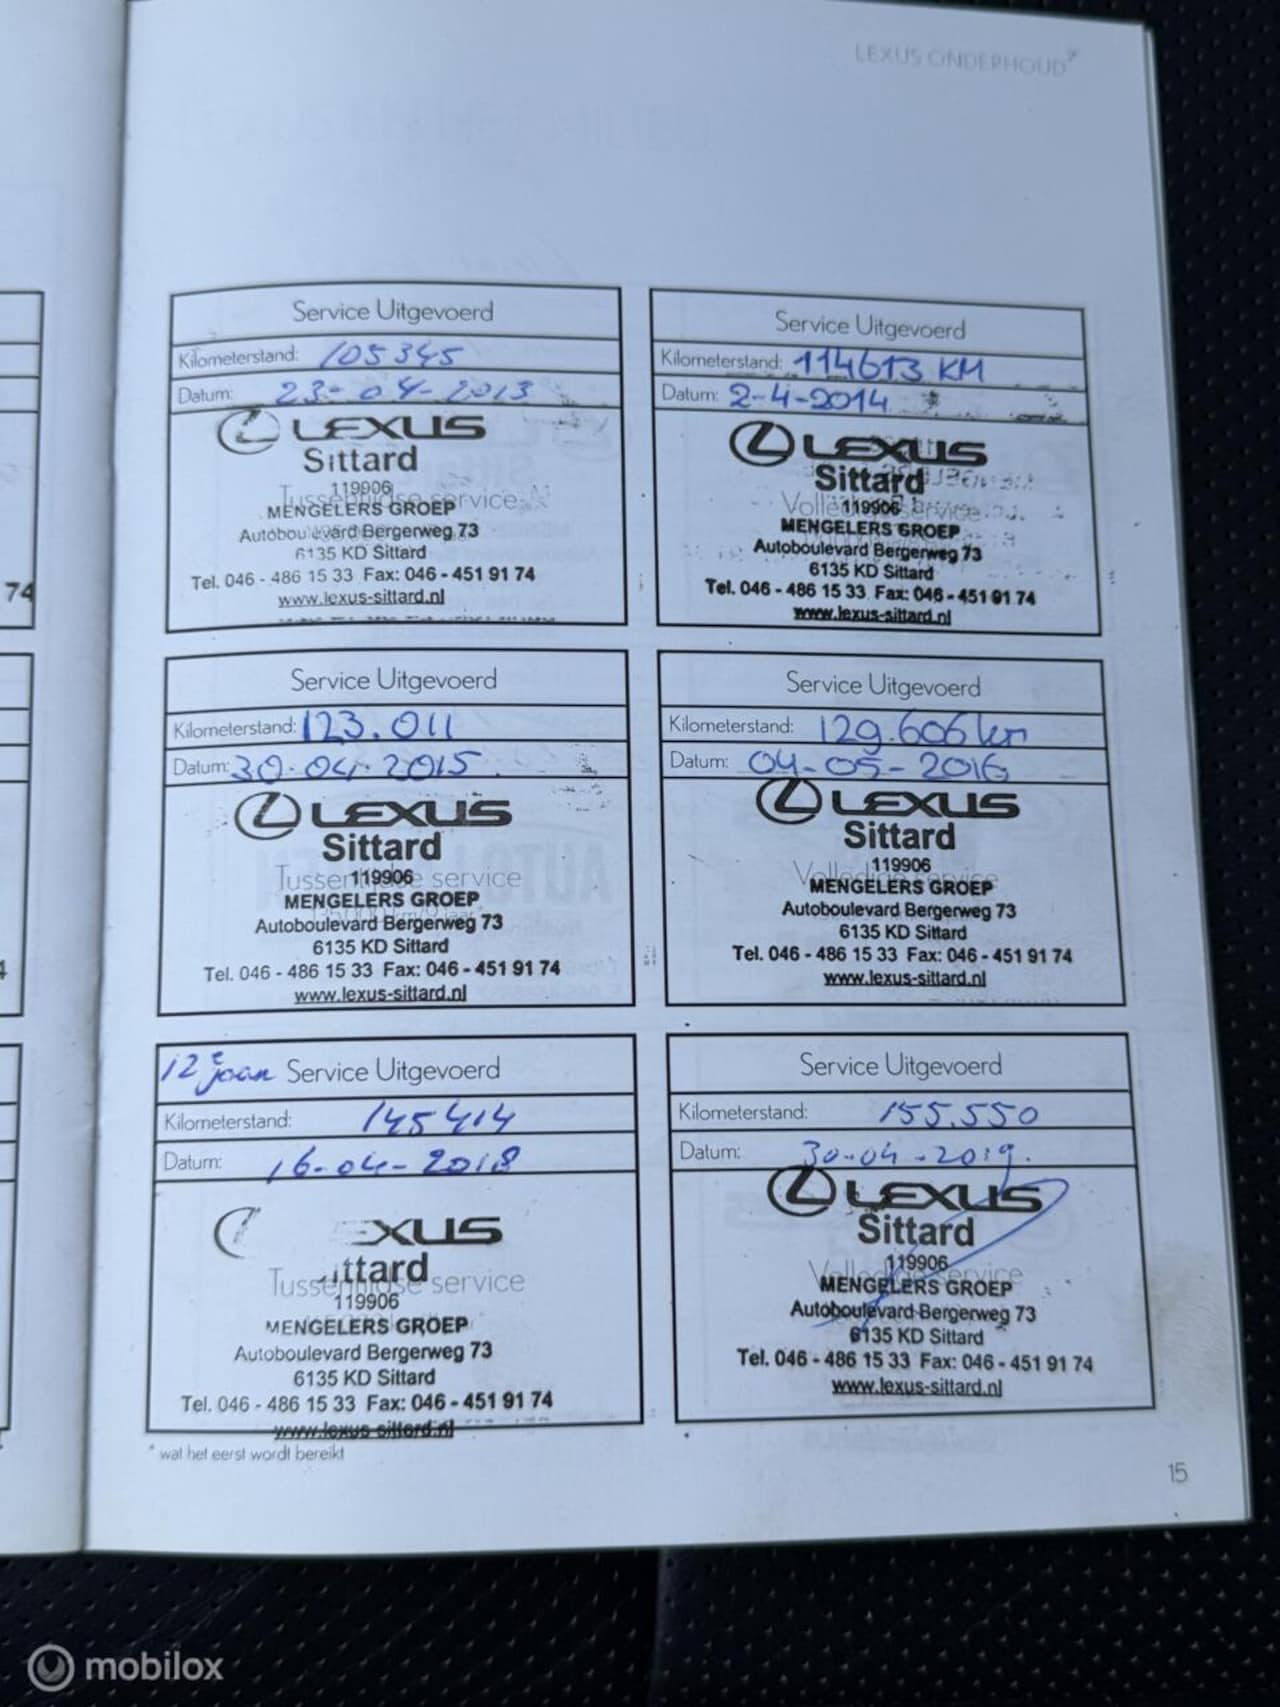 LEXUS ONDERHOUD
74
Service Uitgevoerd
Kilometerstand: 105345
Datum: 23-04-2013
LEXUS
Sittard
119906
Tussentijdse service
MENGELERS GROEP
Autoboulevard Bergerweg 73
6135 KD Sittard
Tel. 046 - 486 15 33 Fax: 046 - 451 91 74
www.lexus-sittard.nl
Service Uitgevoerd
Kilometerstand: 114613 KM
Datum: 2-4-2014
LEXUS
Sittard
119906
Volledige service
MENGELERS GROEP
Autoboulevard Bergerweg 73
6135 KD Sittard
Tel. 046 - 486 15 33 Fax: 046 - 451 91 74
www.lexus-sittard.nl
Service Uitgevoerd
Kilometerstand: 123.011
Datum: 30-04-2015
LEXUS
Sittard
119906
Tussentijdse service
MENGELERS GROEP
Autoboulevard Bergerweg 73
6135 KD Sittard
Tel. 046 - 486 15 33 Fax: 046 - 451 91 74
www.lexus-sittard.nl
Service Uitgevoerd
Kilometerstand: 129.606 km
Datum: 04-05-2016
LEXUS
Sittard
119906
Volledige service
MENGELERS GROEP
Autoboulevard Bergerweg 73
6135 KD Sittard
Tel. 046 - 486 15 33 Fax: 046 - 451 91 74
www.lexus-sittard.nl
12e jaar Service Uitgevoerd
Kilometerstand: 145414
Datum: 16-04-2018
EXUS
ittard
Tussentijdse service
119906
MENGELERS GROEP
Autoboulevard Bergerweg 73
6135 KD Sittard
Tel. 046 - 486 15 33 Fax: 046 - 451 91 74
www.lexus-sittard.nl
Service Uitgevoerd
Kilometerstand: 155.550
Datum: 30-04-2019.
LEXUS
Sittard
119906
Volledige service
MENGELERS GROEP
Autoboulevard Bergerweg 73
6135 KD Sittard
Tel. 046 - 486 15 33 Fax: 046 - 451 91 74
www.lexus-sittard.nl
* wat het eerst wordt bereikt
15
mobilox